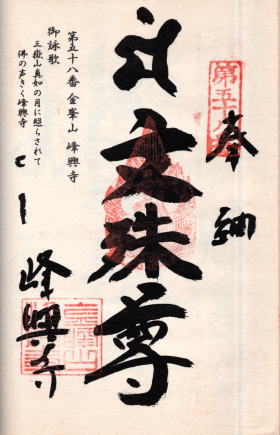 奉納
文殊尊
峰興寺
第五十八番 金峯山 峰興寺
御詠歌
三嶽山真如の月に照らされて
佛の声きく峰興寺